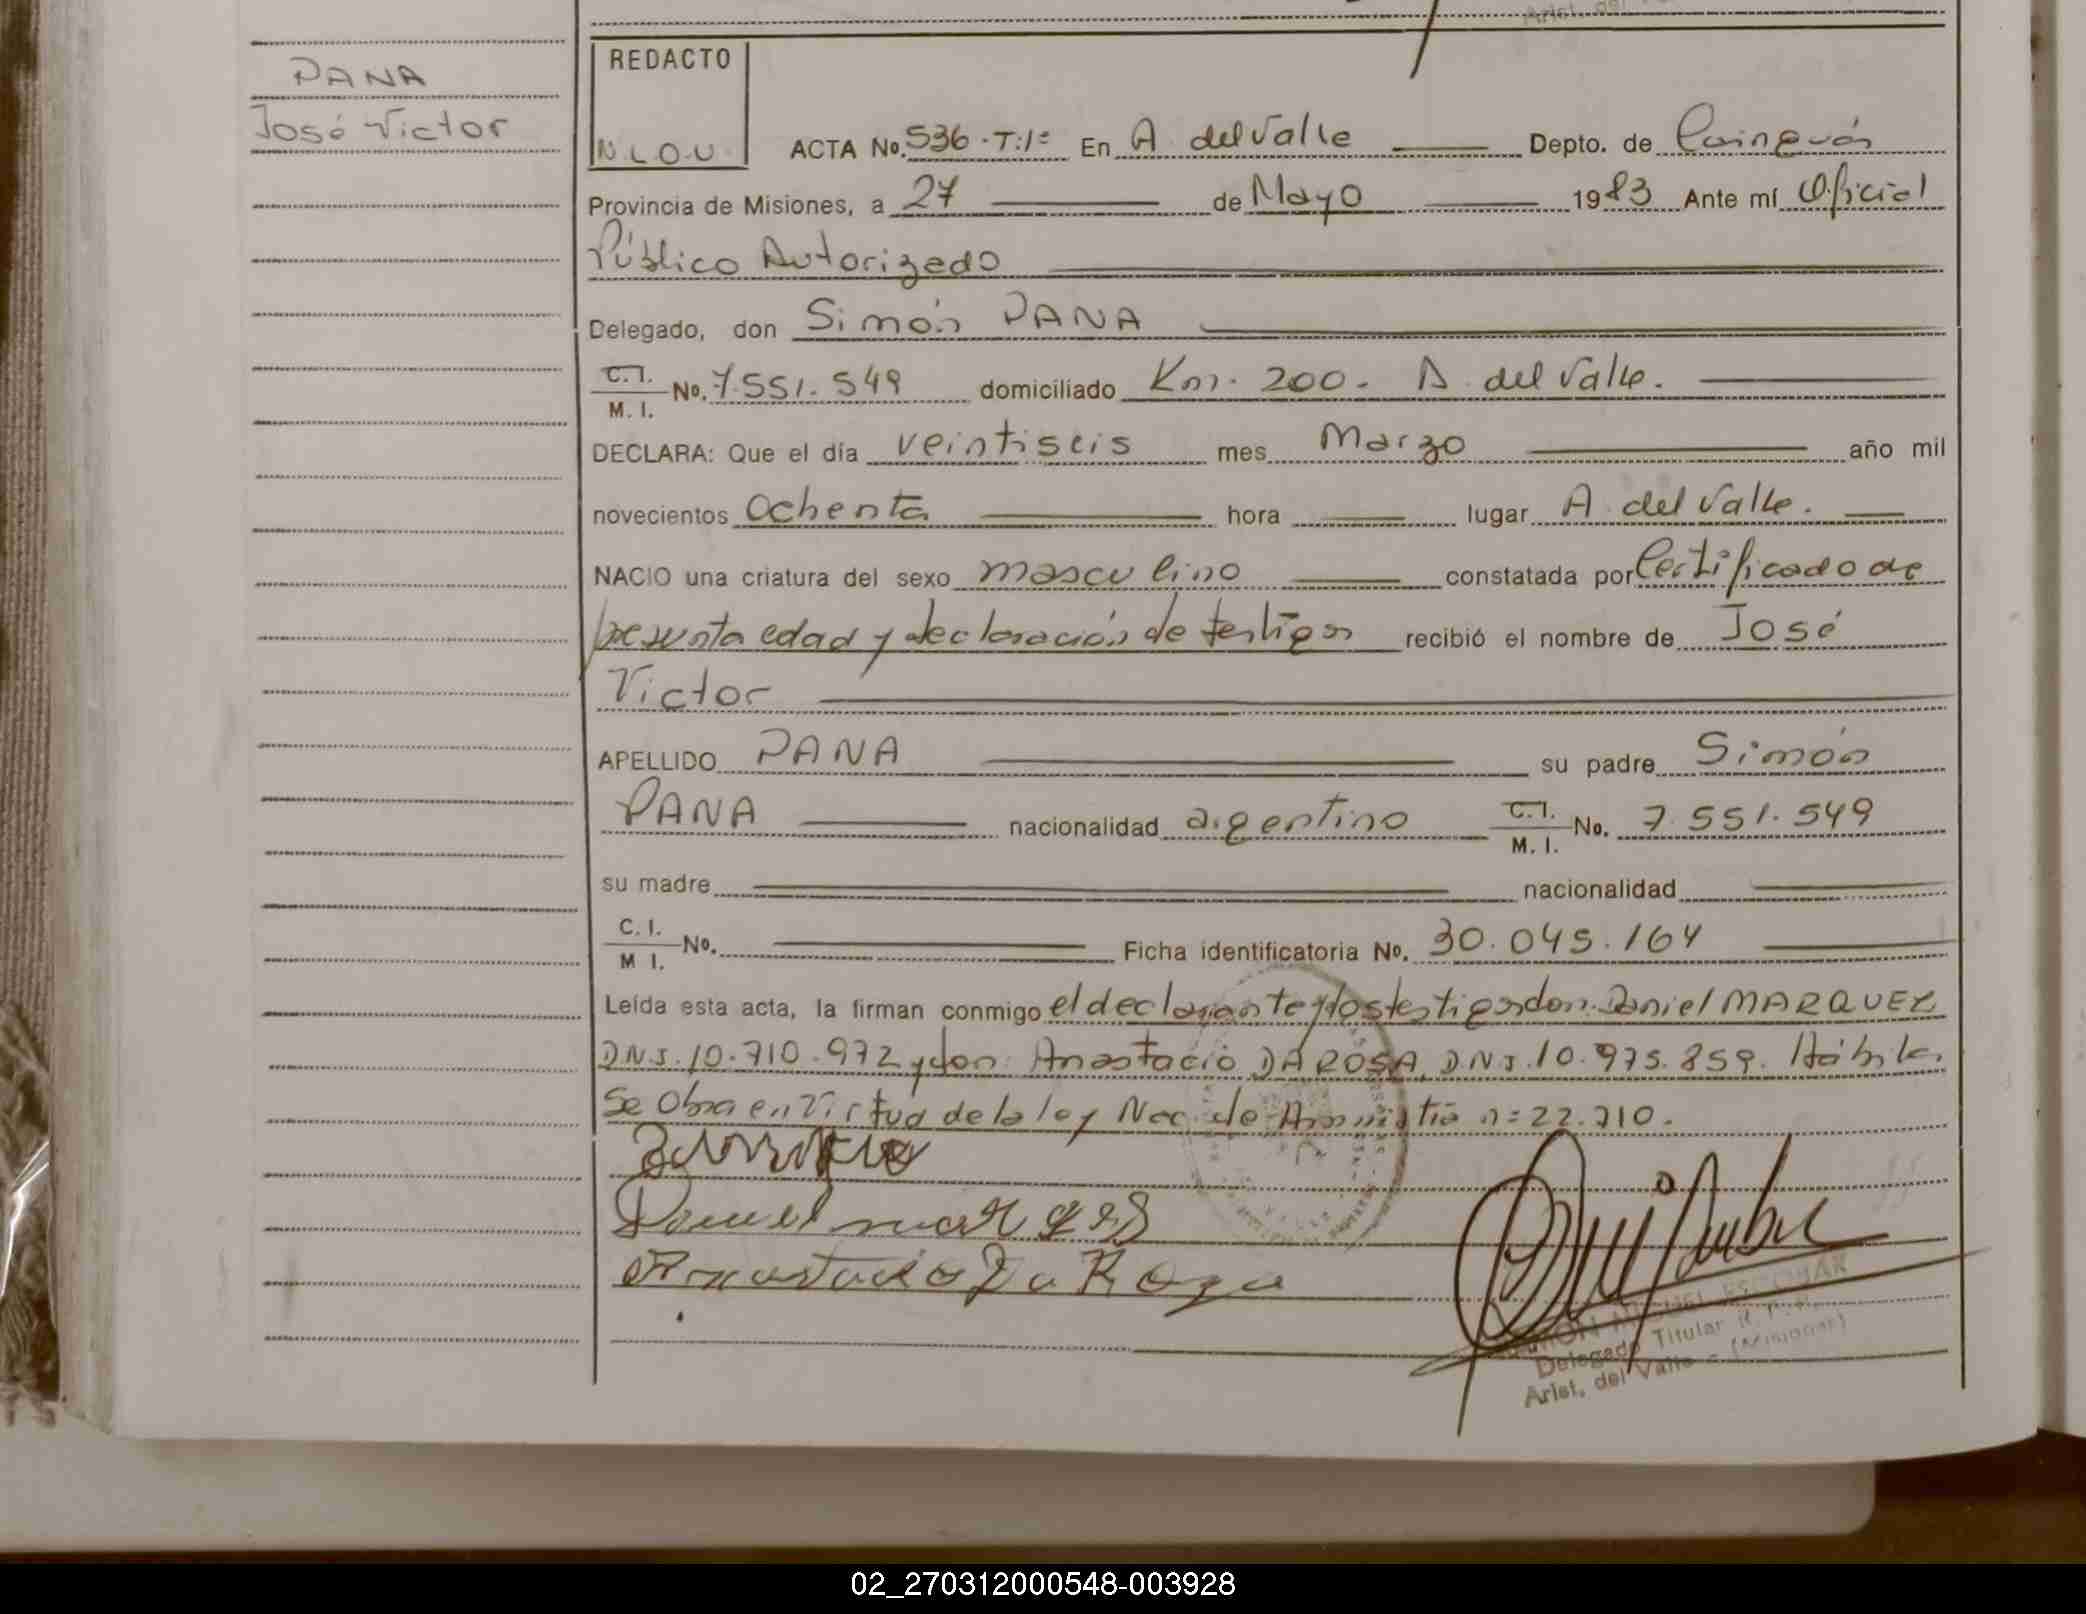 PANA
José Victor
REDACTO
N.L.O.U.
ACTA No. 536-T:1º En A. del Valle Depto. de Cainguás
Provincia de Misiones, a 27 de Mayo 1983 Ante mí Oficial
Público Autorizado
Delegado, don Simón PANA
C.I. M. I. No. 7.551.549 domiciliado Km. 200. A. del Valle.
DECLARA: Que el día veintiseis mes Marzo año mil
novecientos ochenta hora lugar A. del Valle.
NACIO una criatura del sexo masculino constatada por Certificado de
presunta edad y declaración de testigos recibió el nombre de José
Victor
APELLIDO PANA su padre Simón
PANA nacionalidad argentino C.I. M. I. No. 7.551.549
su madre nacionalidad
C. I. M I. No. Ficha identificatoria No. 30.045.164
Leída esta acta, la firman conmigo el declarante y los testigos don: Daniel MARQUEZ
D.N.I. 10.710.972 y don: Anastacio DA ROSA, D.N.I. 10.975.859. Hábiles.
Se Obra en Virtud de la ley Nac. de Amnistia nº 22.710.
Daniel marqes
Anastacio Da Roza
MIGUEL ESCOBAR
Delegado Titular R. P. P.
Arist. del Valle - (Misiones)
02_270312000548-003928